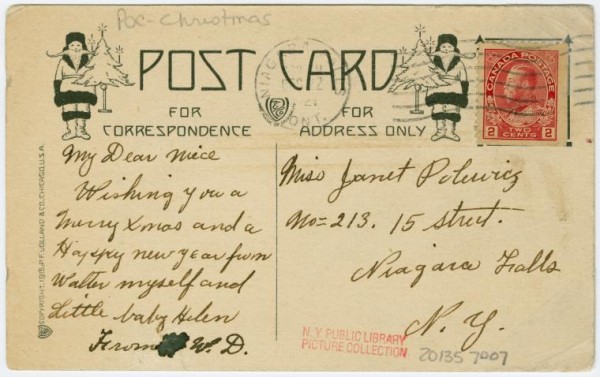 Poc-Christmas
POST CARD
FOR CORRESPONDENCE
FOR ADDRESS ONLY
NIAGARA
21
ONT.
CANADA POSTAGE
2 TWO CENTS 2
My Dear niece
Wishing you a
Merry Xmas and a
Happy new year from
Walter myself and
Little baby Helen
W. D.
Miss Janet
No= 213. 15 street.
Niagara Falls
N. Y.
COPYRIGHT, 1915, P. F. VOLLAND & CO. CHICAGO, U.S.A.
N.Y. PUBLIC LIBRARY
PICTURE COLLECTION
20135 7007